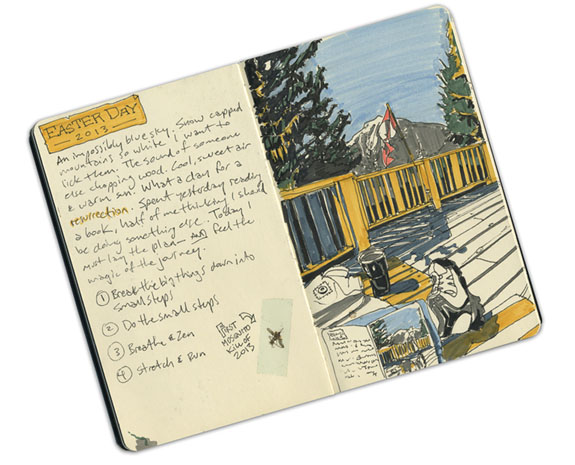 EASTER DAY
2013
An impossibly blue sky. Snow capped
mountains so white, i want to
lick them. The sound of someone
else chopping wood. Cool, sweet air
& warm sun. What a day for a
resurrection. Spent yesterday reading
a book, half of me thinking I should
be doing something else. Today I
must lay the plan — and feel the
magic of the journey.
① Break the big things down into
small steps
② Do the small steps
③ Breathe & Zen
④ Stretch & Run
FIRST
MOSQUITO
KILL OF
2013